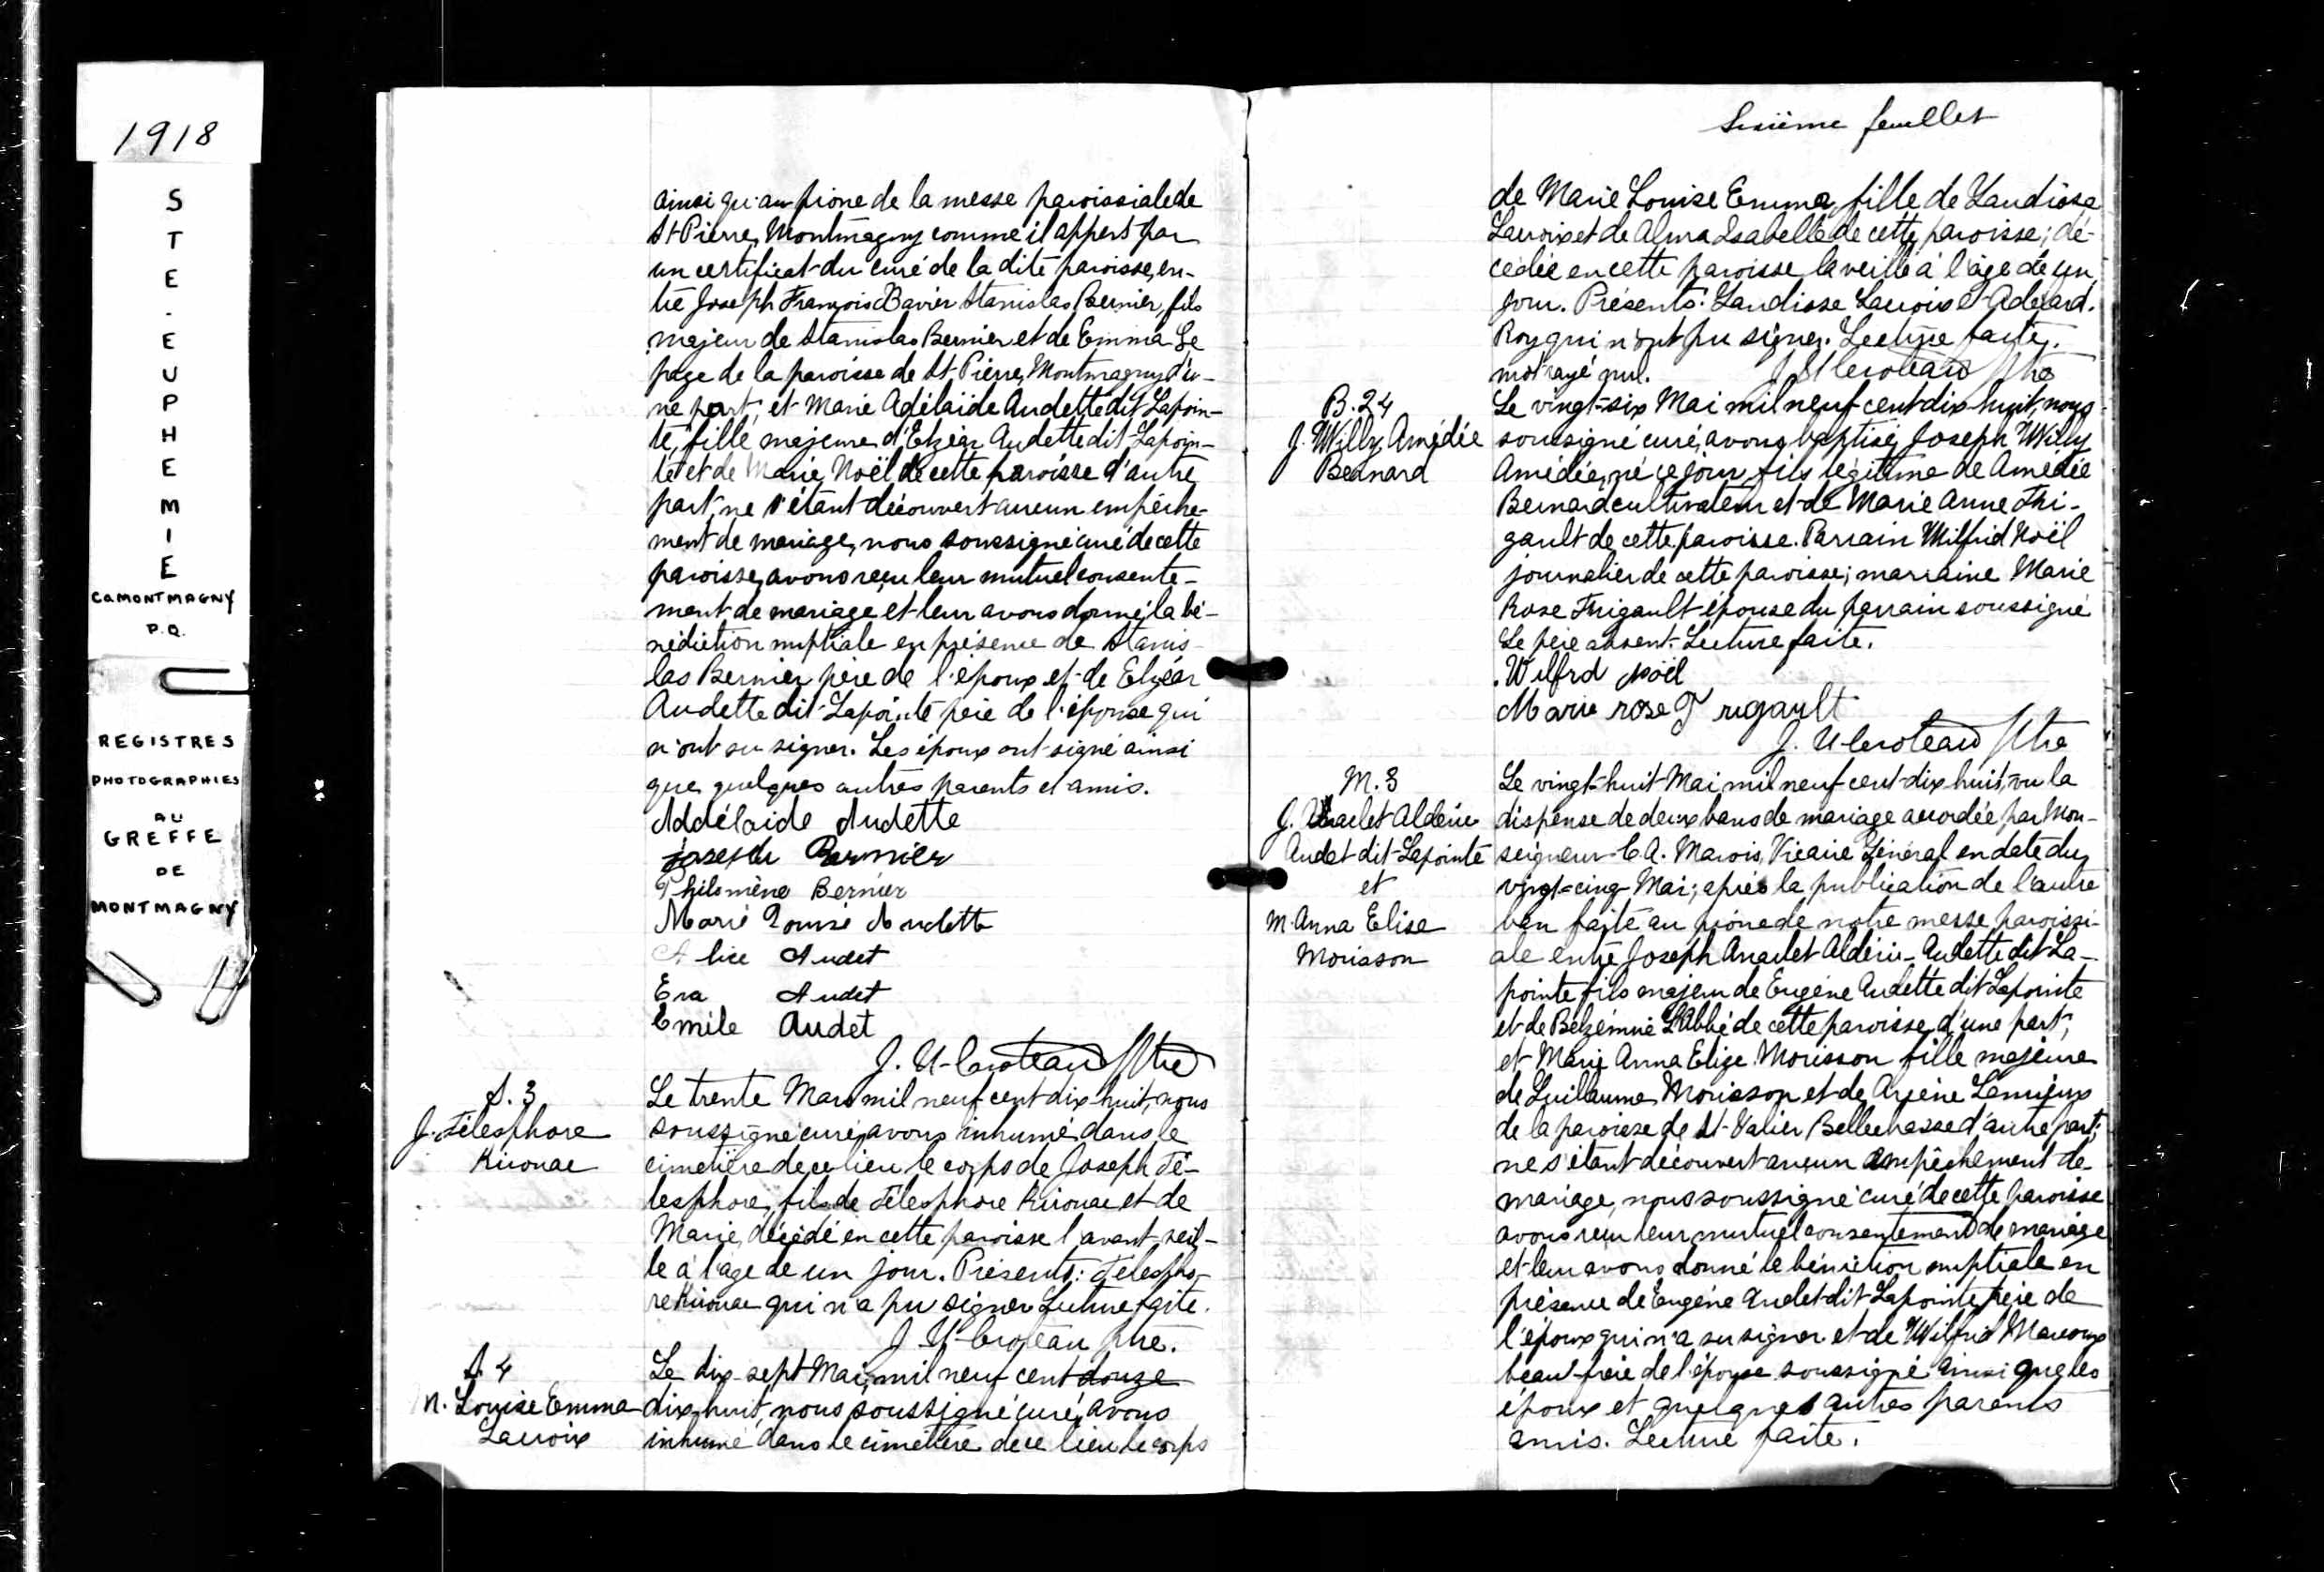 1918
STE-EUPHEMIE
CO MONTMAGNY
P.Q.
REGISTRES
PHOTOGRAPHIES
AU
GREFFE
DE
MONTMAGNY
ainsi qu'au prône de la messe paroissiale de
St Pierre, Montmagny comme il appert par
un certificat du curé de la dite paroisse, en-
tre Joseph François Xavier Stanislas Bernier, fils
majeur de Stanislas Bernier et de Emma Le
page de la paroisse de St Pierre, Montmagny d'u-
ne part, et Marie Adélaïde Audette dit Lapoin-
te, fille majeure d'Elzéar Audette dit Lapoin-
te et de Marie Noël de cette paroisse d'autre
part, ne s'étant découvert aucun empêche-
ment de mariage, nous soussigné curé de cette
paroisse, avons reçu leur mutuel consente-
ment de mariage, et leur avons donné la bé-
nédiction nuptiale en présence de Stanis-
las Bernier père de l'époux et de Elzéar
Audette dit Lapointe père de l'épouse qui
n'ont su signer. Les époux ont signé ainsi
que quelques autres parents et amis.
Addélaide Audette
joseph Bernier
Philomène Bernier
Marie Louise Audette
Alice Audet
Eva Audet
Emile Audet
J. U-Croteau Ptre
S. 3
J. Télesphore
Kirouac
Le trente Mars mil neuf cent dix huit, nous
soussigné curé, avons inhumé dans le
cimetière de ce lieu le corps de Joseph Té-
lesphore, fils de Télesphore Kirouac et de
Marie, décédé en cette paroisse l'avant-veil-
le à l'age de un jour. Présents: Télespho-
re Kirouac qui n'a pu signer Lecture faite.
J. U-Croteau ptre.
S. 4
M. Louise Emma
Lacroix
Le dix-sept Mai, mil neuf cent douze
dix huit, nous soussigné curé, avons
inhumé dans le cimetière de ce lieu le corps
Sixième feuillet
de Marie Louise Emma, fille de Laudiose
Lacroix et de Alma Isabelle de cette paroisse; dé-
cédée en cette paroisse la veille à l'âge de un
jour. Présents: Laudisse Lacroix et Adélard.
Roy qui n'ont pu signer. Lecture faite.
mot rayé nul. J. U Croteau Ptre
B. 24
J. Willy Amédée
Bernard
Le vingt-six Mai mil neuf cent dix-huit, nous
soussigné curé, avons baptisé, Joseph Willy
Amédée, né ce jour fils légitime de Amédée
Bernard cultivateur et de Marie Anne Thi-
gault de cette paroisse. Parrain Wilfrid Noël
journalier de cette paroisse; marraine Marie
Rose Trigault épouse du parrain soussigné
Le père absent. Lecture faite.
Wilfrd Noël
Marie rose Trigault
J. U-Croteau Ptre
M. 3
J. Anaclet Aldéric
Audet dit Lapointe
et
M. Anna Elise
Morisson
Le vingt-huit Mai mil neuf cent-dix huit, vu la
dispense de deux bans de mariage accordée par Mon-
seigneur C. A. Marois, Vicaire Général en date du
vingt-cinq Mai; après la publication de l'autre
ban faite au prône de notre messe paroissi-
ale entre Joseph Anaclet Aldéric Audette dit La-
pointe fils majeur de Eugène Audette dit Lapointe
et de Belzémire L'Abbé de cette paroisse, d'une part;
et Marie Anna Elise Morisson fille majeure
de Guillaume Morisson et de Arsène Lemieux
de la paroisse de St-Valier Bellechasse d'autre part;
ne s'étant découvert aucun empêchement de
mariage, nous soussigné curé de cette paroisse
avons reçu leur mutuel consentement de mariage
et leur avons donné la bénédiction nuptiale en
présence de Eugène Audet dit Lapointe père de
l'époux qui n'a su signer et de Wilfrid Marcoux
beau-frère de l'épouse soussigné ainsi que les
époux et quelques autres parents
amis. Lecture faite.